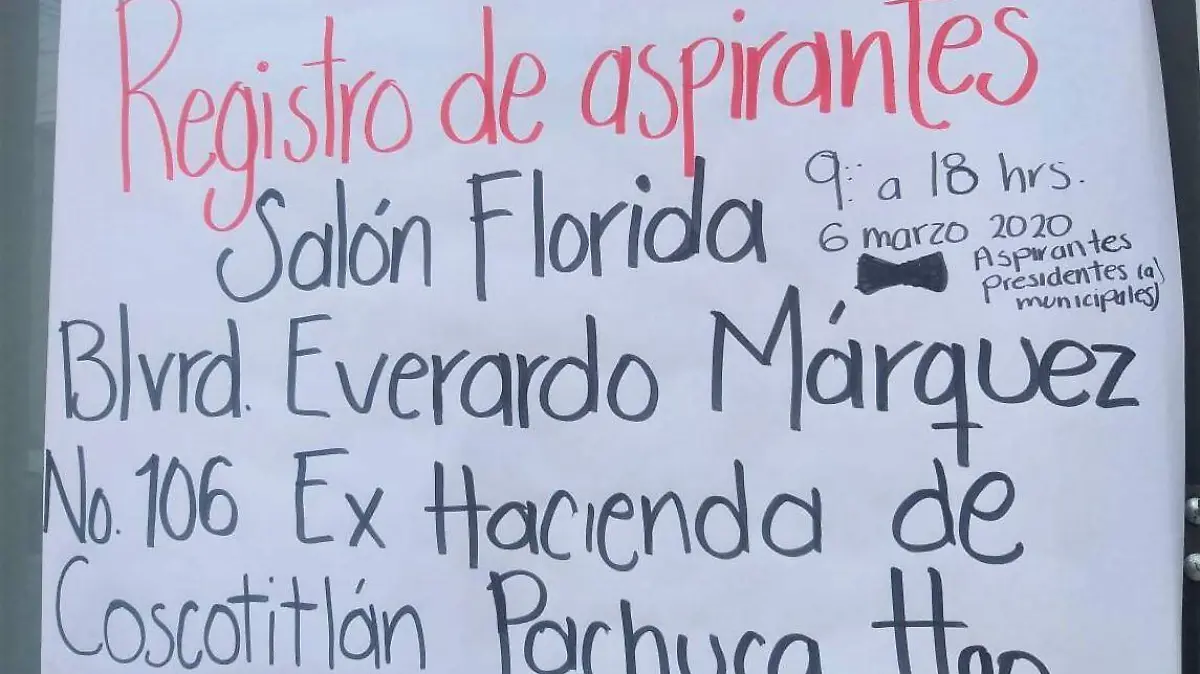 Registro de aspirantes
Salón Florida
9: a 18 hrs.
6 marzo 2020
Aspirantes
presidentes (a)
municipales)
Blvrd. Everardo Márquez
No. 106 Ex Hacienda de
Coscotitlán Pachuca Hgo